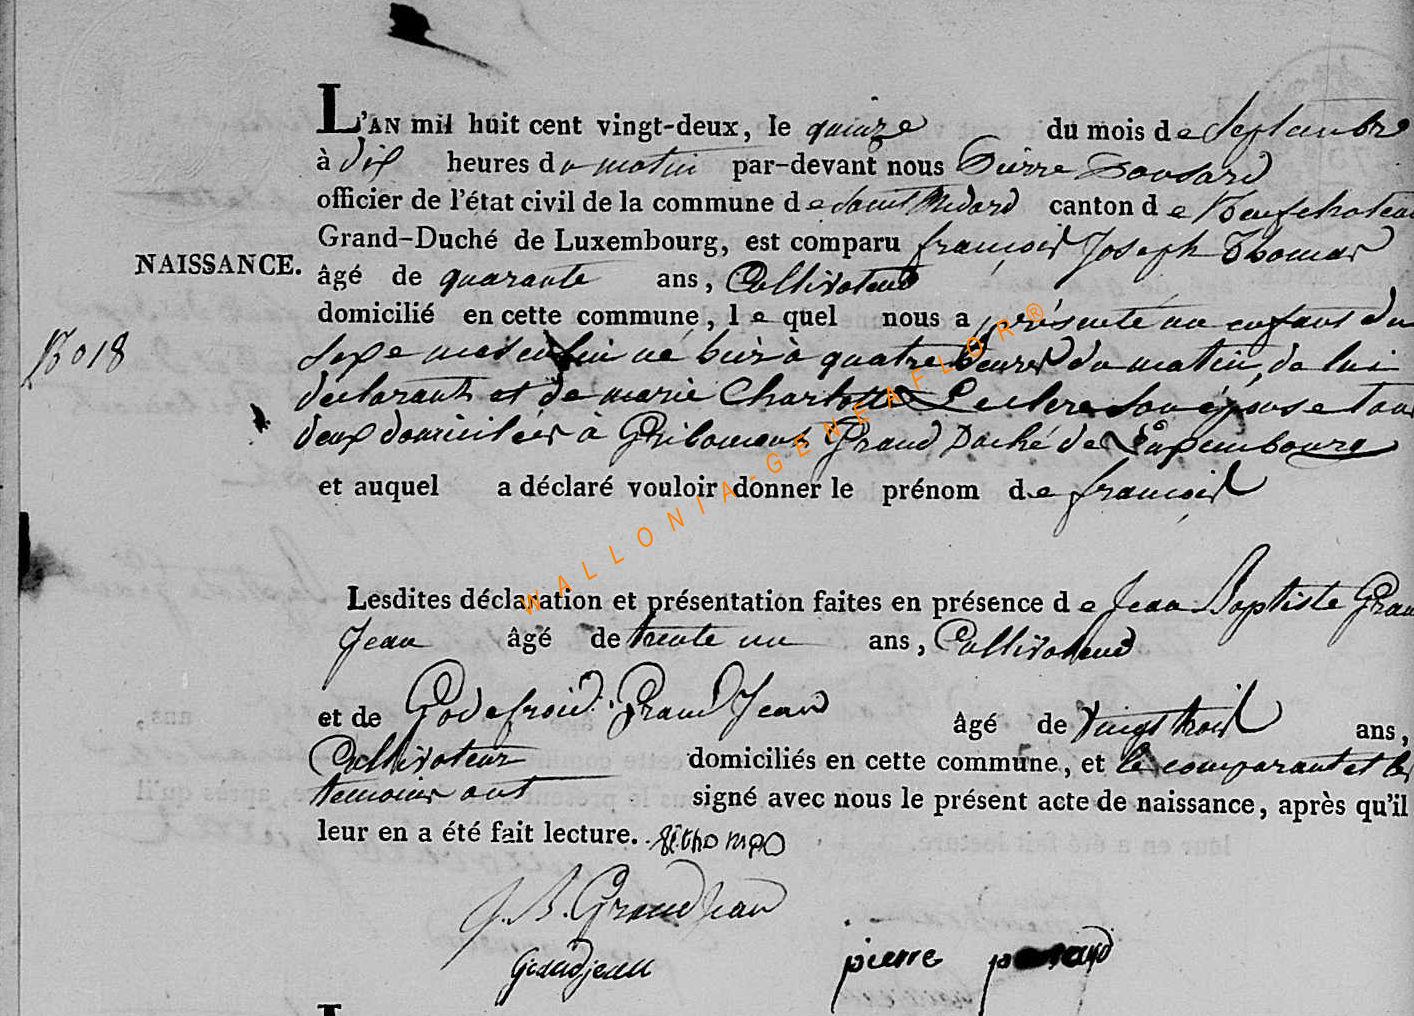 L'AN mil huit cent vingt-deux, le quinze du mois de Septembre
à dix heures du matin par-devant nous Pierre
officier de l'état civil de la commune de Saint Médard canton de Neufchateau
Grand-Duché de Luxembourg, est comparu françois Joseph Thomas
NAISSANCE.
âgé de quarante ans, Cultivateur
domicilié en cette commune, lequel nous a présenté un enfant du
No 18
Sexe masculin né hier à quatre heures du matin, de lui
declarant et de marie Charlotte Leclere Son épouse tous
deux domiciliés à Gribomont Grand Duché de Luxembourg
et auquel a déclaré vouloir donner le prénom de françois
WALLONIA-GENEAFLOR®
Lesdites déclaration et présentation faites en présence de Jean Baptiste Grand
Jean âgé de trente un ans, Cultivateur
et de Godefroid Grand Jean âgé de vingt trois ans,
Cultivateur domiciliés en cette commune, et le comparant et les
temoins ont signé avec nous le présent acte de naissance, après qu'il
leur en a été fait lecture.
J. B. Grandjean
grandjean
pierre